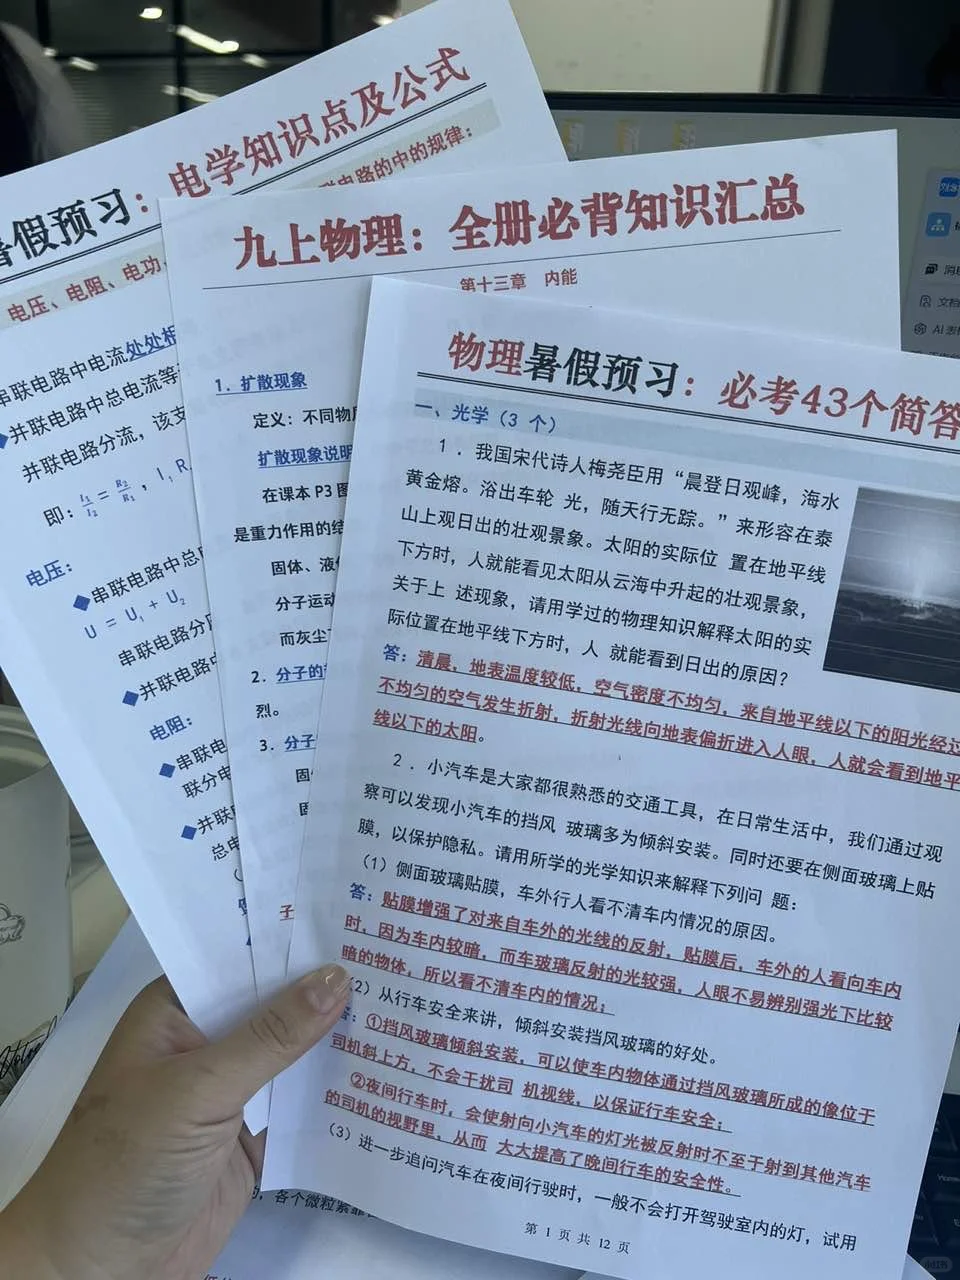 暑假预习：电学知识点及公式
联电路的中的规律：
电压、电阻、电功、
串联电路中电流处处相
并联电路中总电流等
并联电路分流，该支
即：I₁/I₂ = R₂/R₁，I₁R
电压：
串联电路中总
U = U₁ + U₂
串联电路分
并联电路中
电阻：
串联电
联分电
并联
总电
九上物理：全册必背知识汇总
第十三章 内能
1．扩散现象
定义：不同物
扩散现象说明
在课本 P3 图
是重力作用的结
固体、液
分子运动
而灰尘
2．分子的
烈。
3．分子
固
固
子
物理暑假预习：必考43个简答
一、光学（3 个）
1．我国宋代诗人梅尧臣用“晨登日观峰，海水
黄金熔。浴出车轮 光，随天行无踪。”来形容在泰
山上观日出的壮观景象。太阳的实际位 置在地平线
下方时，人就能看见太阳从云海中升起的壮观景象，
关于上 述现象，请用学过的物理知识解释太阳的实
际位置在地平线下方时，人 就能看到日出的原因？
答：清晨，地表温度较低，空气密度不均匀，来自地平线以下的阳光经过
不均匀的空气发生折射，折射光线向地表偏折进入人眼，人就会看到地平
线以下的太阳。
2．小汽车是大家都很熟悉的交通工具，在日常生活中，我们通过观
察可以发现小汽车的挡风 玻璃多为倾斜安装。同时还要在侧面玻璃上贴
膜，以保护隐私。请用所学的光学知识来解释下列问 题：
（1）侧面玻璃贴膜，车外行人看不清车内情况的原因。
答：贴膜增强了对来自车外的光线的反射，贴膜后，车外的人看向车内
时，因为车内较暗，而车玻璃反射的光较强，人眼不易辨别强光下比较
暗的物体，所以看不清车内的情况；
（2）从行车安全来讲，倾斜安装挡风玻璃的好处。
答：①挡风玻璃倾斜安装，可以使车内物体通过挡风玻璃所成的像位于
司机斜上方，不会干扰司 机视线，以保证行车安全；
②夜间行车时，会使射向小汽车的灯光被反射时不至于射到其他汽车
的司机的视野里，从而 大大提高了晚间行车的安全性。
（3）进一步追问汽车在夜间行驶时，一般不会打开驾驶室内的灯，试用
第 1 页 共 12 页
，各个微粒紧靠
消息
文档